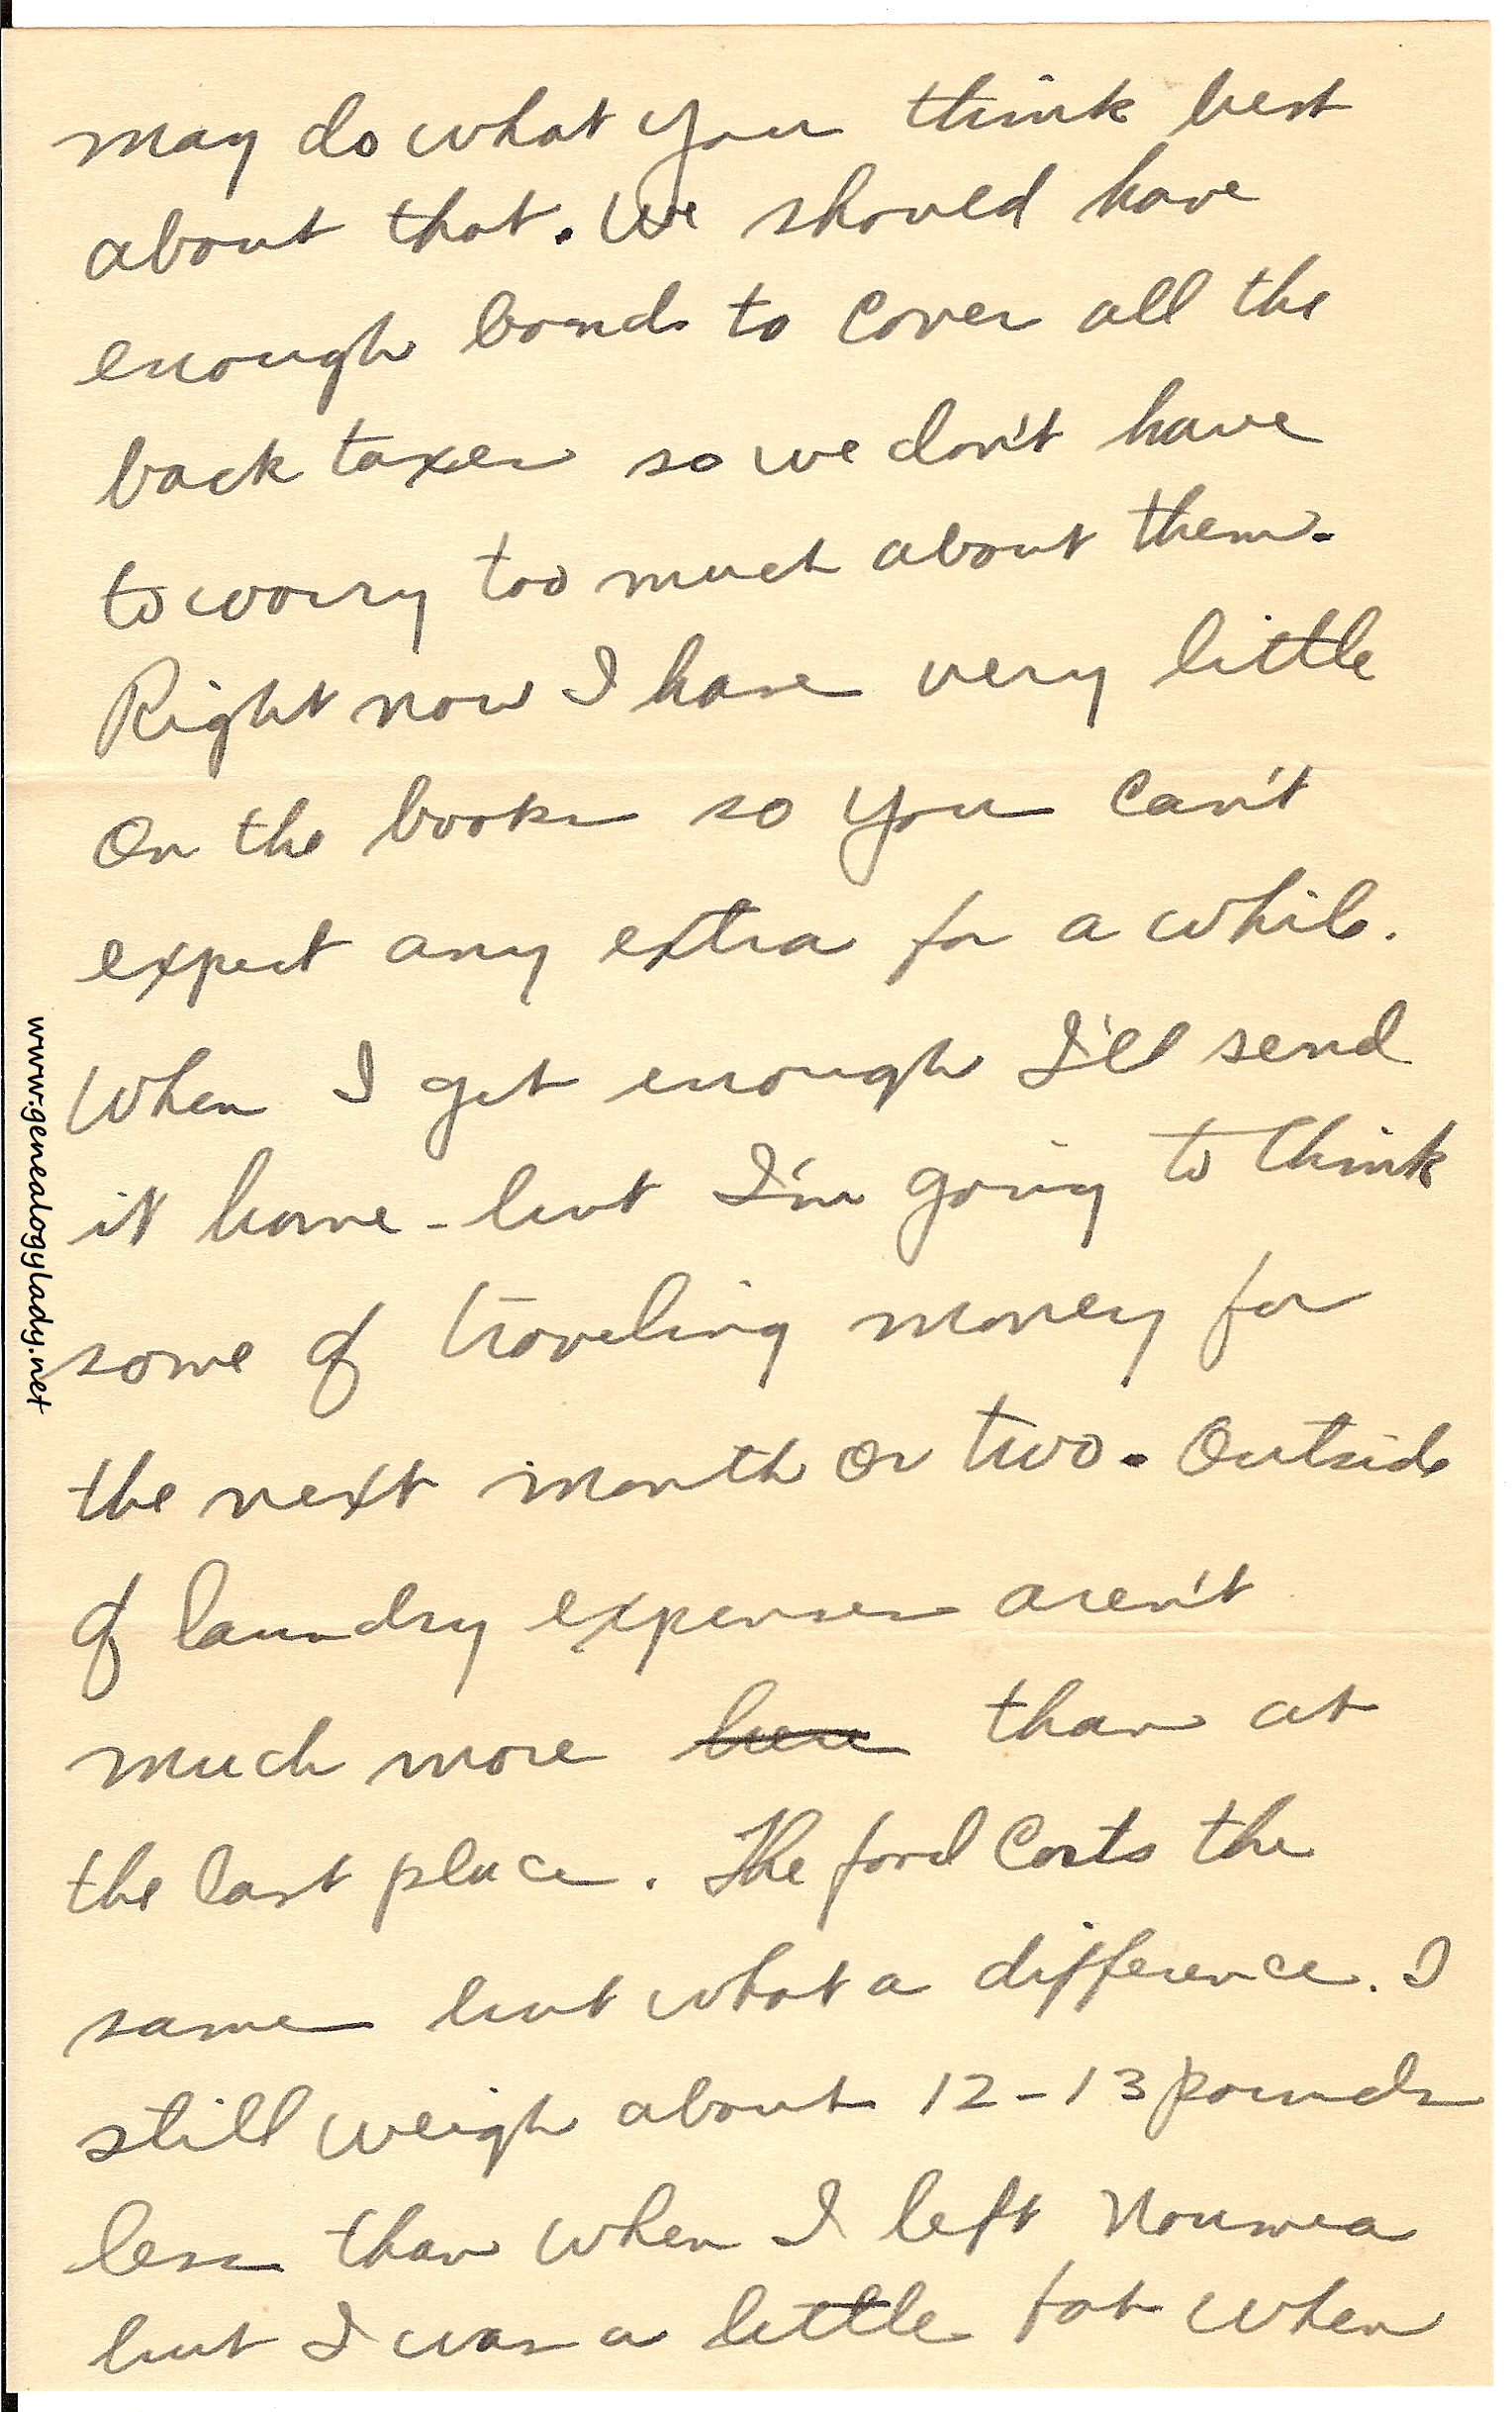 may do what you think best
about that. We should have
enough bonds to cover all the
back taxes so we don't have
to worry too much about them.
Right now I have very little
on the books so you can't
expect any extra for a while.
When I get enough I'll send
it home - but I'm going to think
some of traveling money for
the next month or two. Outside
of laundry expenses aren't
much more here than at
the last place. The food costs the
same but what a difference. I
still weigh about 12-13 pounds
less than when I left Noumea
but I was a little fat when
www.genealogylady.net